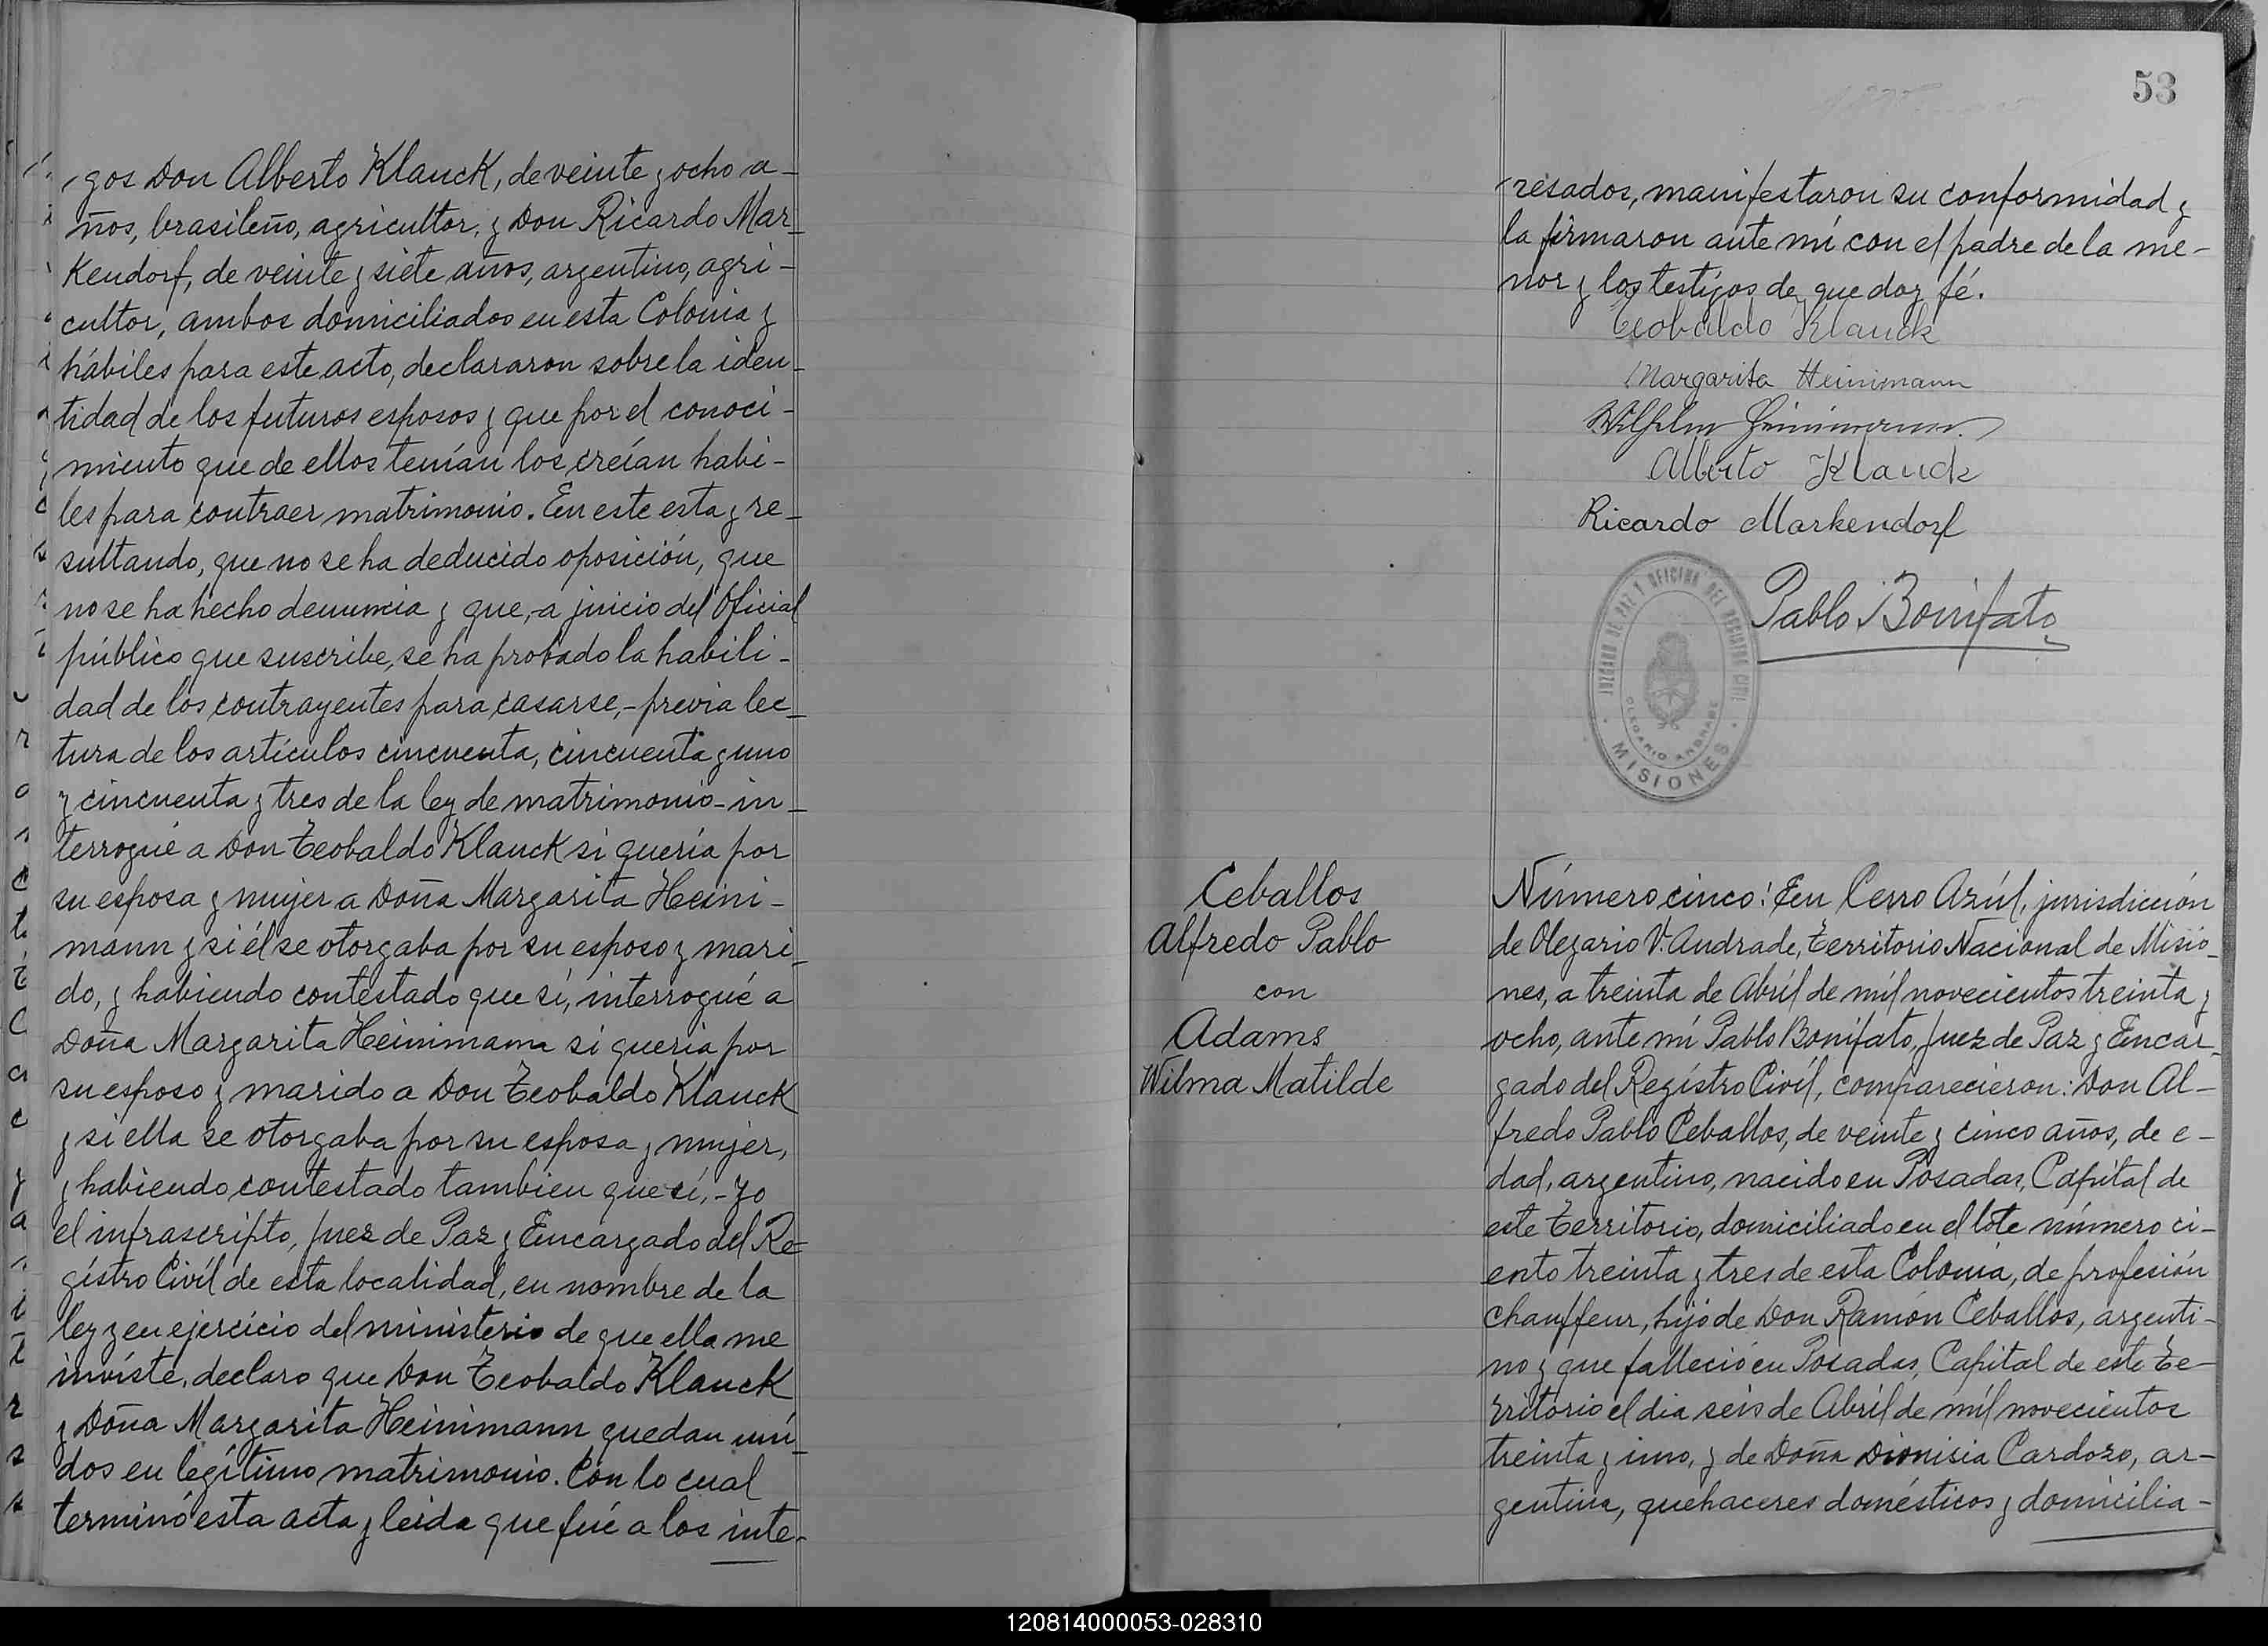 gos Don Alberto Klauck, de veinte y ocho a-
ños, brasileño, agricultor, y Don Ricardo Mar-
Kendorf, de veinte y siete años, argentino, agri-
cultor, ambos domiciliados en esta Colonia y
hábiles para este acto, declararon sobre la iden-
tidad de los futuros esposos y que por el conoci-
miento que de ellos tenían los creían habi-
les para contraer matrimonio. En este esta y re-
sultando, que no se ha deducido oposición, que
no se ha hecho denuncia y que, a juicio del Oficial
público que suscribe, se ha probado la habili-
dad de los contrayentes para casarse, - previa lec-
tura de los artículos cincuenta, cincuenta y uno
y cincuenta y tres de la ley de matrimonio - in-
terrogué a Don Teobaldo Klauck si quería por
su esposa y mujer a Doña Margarita Heini-
mann y si él se otorgaba por su esposo y mari-
do, y habiendo contestado que sí, interrogué a
Doña Margarita Heinimann si quería por
su esposo y marido a Don Teobaldo Klauck
y si ella se otorgaba por su esposa y mujer,
y habiendo contestado tambien que sí, - yo
el infrascripto, Juez de Paz y Encargado del Re-
gístro Civíl de esta localidad, en nombre de la
ley y en ejercicio del ministerio de que ella me
invíste, declaro que Don Teobaldo Klauck
y Doña Margaríta Heinimann quedan uni-
dos en legítimo matrimonio. Con lo cual
terminó esta acta y leída que fué a los inte-
53
resados, manifestaron su conformidad y
la firmaron ante mí con el padre de la me-
nor y los testigos de que doy fé.
Teobaldo Klauck
Margarita Heinimann
Wilhelm Heinimann
Alberto Klauck
Ricardo Markendorf
Pablo Bonifato
JUZGADO DE PAZ Y OFICINA DEL REGISTRO CIVIL
OLEGARIO ANDRADE
MISIONES
Ceballos
Alfredo Pablo
con
Adams
Wilma Matilde
Número cinco: En Cerro Azúl, jurisdicción
de Olegario V. Andrade, Territorio Nacional de Misio-
nes, a treinta de Abríl de míl novecientos treinta y
ocho, ante mí Pablo Bonifato, Juez de Paz y Encar-
gado del Regístro Civíl, comparecieron: Don Al-
fredo Pablo Ceballos, de veinte y cinco años, de e-
dad, argentino, nacido en Posadas, Capital de
este Territorio, domiciliado en el lote número ci-
ento treinta y tres de esta Colonia, de profesión
chauffeur, hijo de Don Ramón Ceballos, argenti-
no y que falleció en Posadas, Capital de este Te-
rritorio el dia seis de Abríl de míl novecientos
treinta y uno, y de Doña Dionisia Cardozo, ar-
gentina, quehaceres domésticos y domicilia-
120814000053-028310